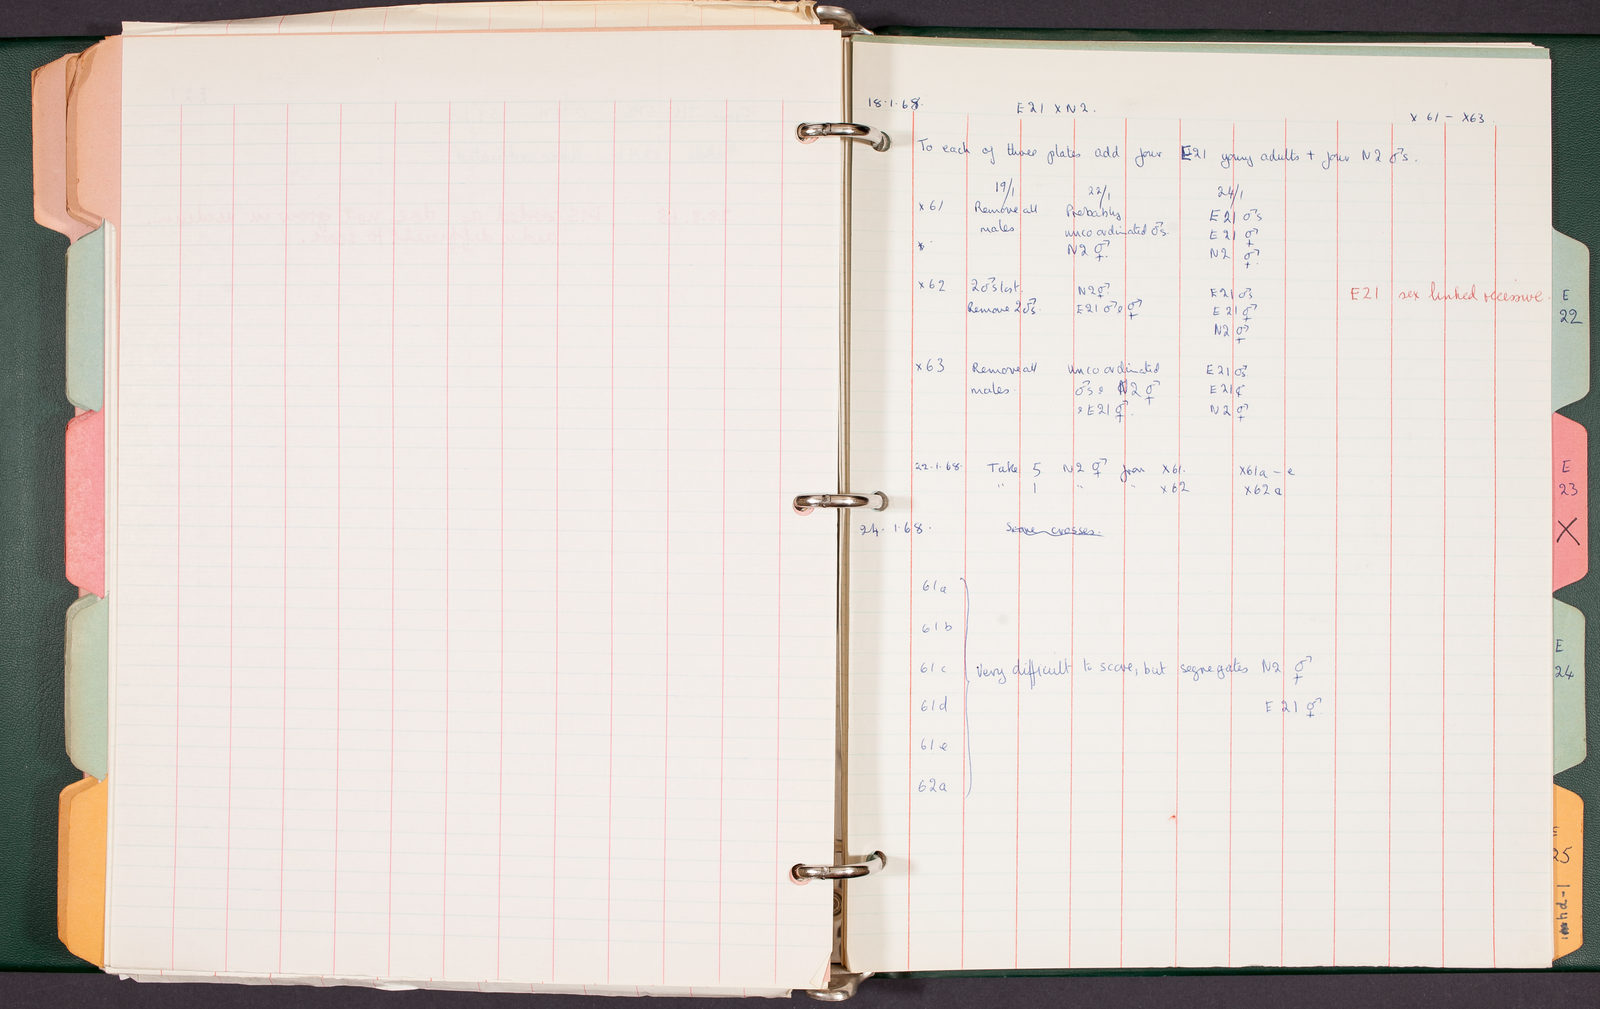 18.1.68. E21 X N2.
X 61 - X63
To each of three plates add four E21 young adults + four N2 ♂s.
19/1 22/1 24/1
X61 Remove all Probably E21 ♂s
males uncoordinated ♂s. E21 ⚥
N2 ⚥. N2 ⚥.
X62 2♂s lost. N2⚥. E21 ♂s E21 sex linked recessive.
Remove 2♂s. E21 ♂s ⚥ E21 ⚥
N2 ⚥
X63 Remove all uncoordinated E21 ♂s
males. ♂s N2 ⚥ E21
E21 ⚥. N2 ⚥
22.1.68. Take 5 N2 ⚥ from X61. X61a - e
" 1 " " X62 X62a
24.1.68. Score crosses.
61a
61b
61c Very difficult to score, but segregates N2 ⚥
61d E21 ⚥.
61e
62a
E
22
E
23
X
E
24
E
25